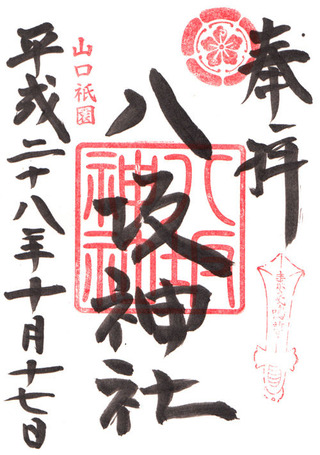 奉拝
八坂神社
山口祇園
平成二十八年十月十七日